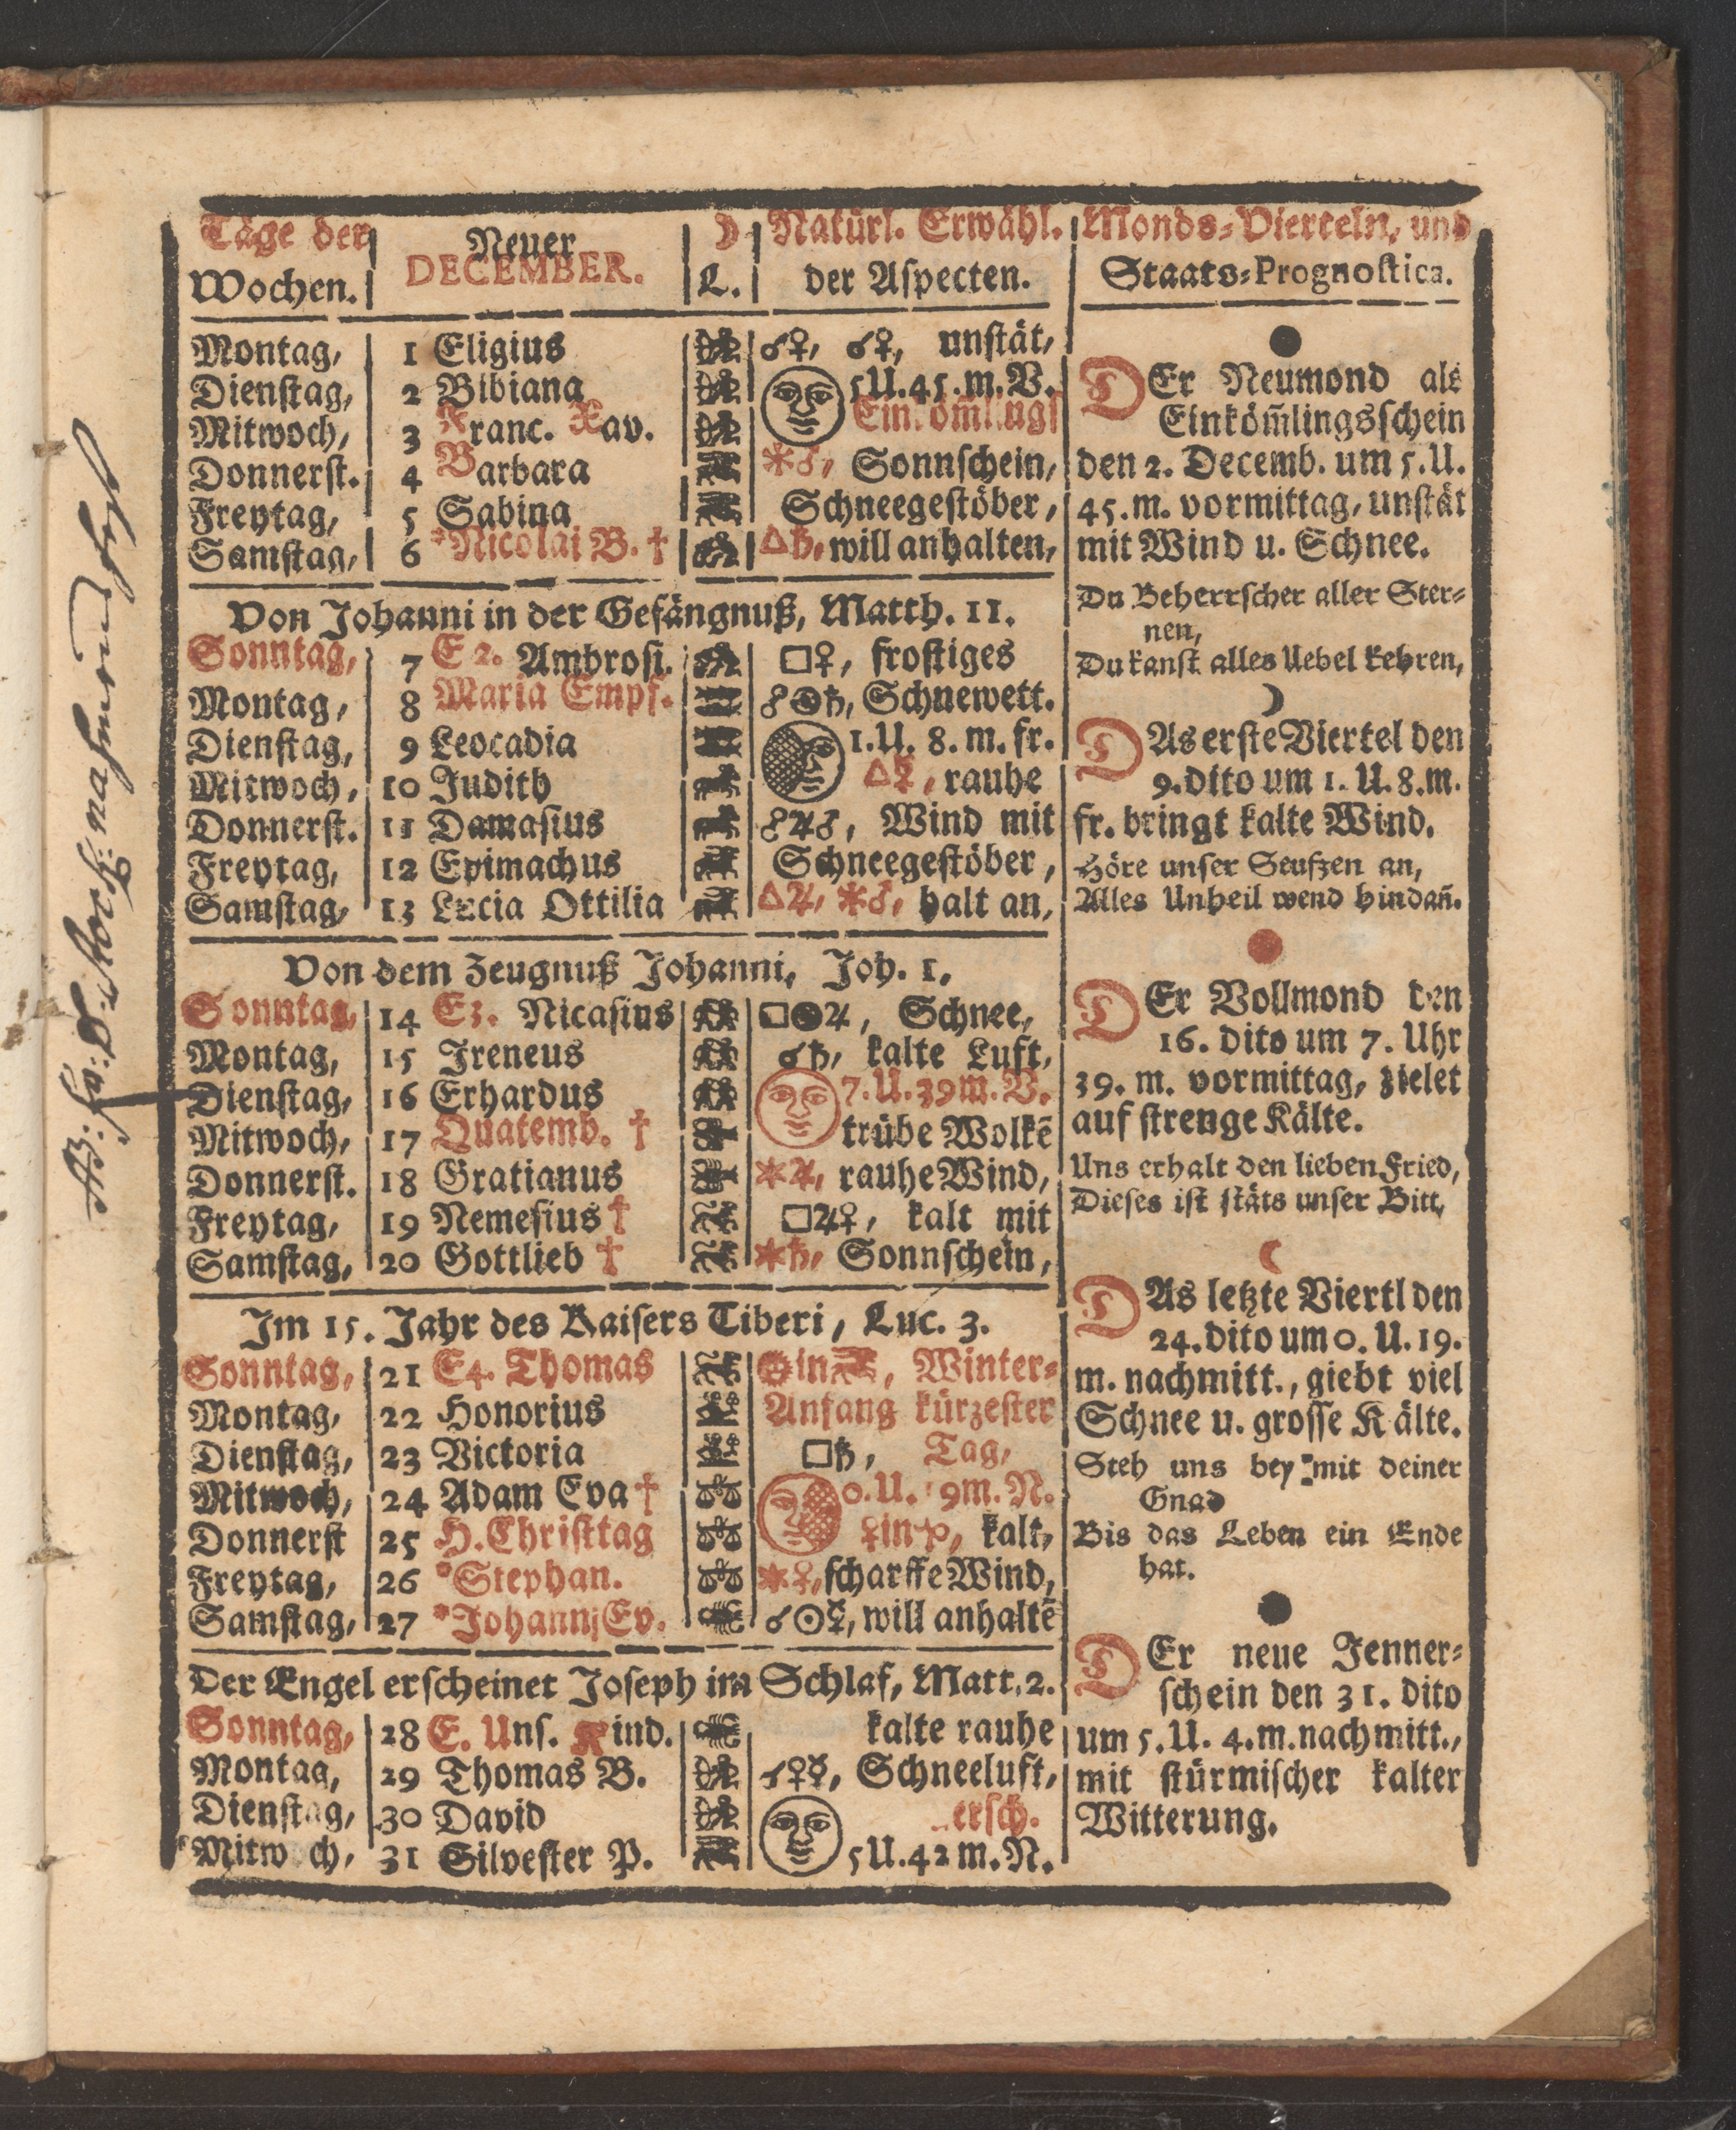 Täge der Wochen. | Neuer DECEMBER. | ☽ L. | Natürl. Erwähl. der Aſpecten. | Monds-Vierteln, und Staats-Prognoſtica.
Montag, 1 Eligius ☌♀, ☌♀, unſtät,
Dienſtag, 2 Bibiana 5U.45.m.V.
Mitwoch, 3 Franc. Xav. Einkom̃lingſ
Donnerſt. 4 Barbara ⚹♂, Sonnſchein,
Freytag, 5 Sabina Schneegeſtöber,
Samſtag, 6 *Nicolai B. † △♄, will anhalten,
Von Johanni in der Gefängnuß, Matth. 11.
Sonntag, 7 E 2. Ambroſi. □♀, froſtiges
Montag, 8 Maria Empf. ☍☉♄, Schnewett.
Dienſtag, 9 Leocadia 1.U. 8. m. fr.
Mitwoch, 10 Judith △☿, rauhe
Donnerſt. 11 Damaſius ☍♃♂, Wind mit
Freytag, 12 Epimachus Schneegeſtöber,
Samſtag, 13 Lucia Ottilia △♃, ⚹♂, halt an,
Von dem Zeugnuß Johanni, Joh. 1.
Sonntag, 14 E3. Nicaſius □☉♃, Schnee,
Montag, 15 Ireneus ☌♄, kalte Luft,
Dienſtag, 16 Erhardus 7.U.39m.V.
Mitwoch, 17 Quatemb. † trübe Wolkē
Donnerſt. 18 Gratianus ⚹♃, rauhe Wind,
Freytag, 19 Nemeſius † □♃♀, kalt mit
Samſtag, 20 Gottlieb † ⚹♄, Sonnſchein,
Im 15. Jahr des Kaiſers Tiberi, Luc. 3.
Sonntag, 21 E4. Thomas ☉in♑, Winter-
Montag, 22 Honorius Anfang kürzeſter
Dienſtag, 23 Victoria □♄, Tag,
Mitwoch, 24 Adam Eva † 0.U. 19m.N.
Donnerſt 25 H.Chriſttag ♀in♑, kalt,
Freytag, 26 *Stephan. ⚹♀, ſcharffe Wind,
Samſtag, 27 *Johanni Ev. ☌☉☿, will anhaltē
Der Engel erſcheinet Joſeph im Schlaf, Matt. 2.
Sonntag, 28 E. Unſ. Kind. kalte rauhe
Montag, 29 Thomas B. ☌♀☿, Schneeluft,
Dienſtag, 30 David erſch.
Mitwoch, 31 Silveſter P. 5U.42m.N.
DEr Neumond als
Einköm̃lingsſchein
den 2. Decemb. um 5.U.
45.m. vormittag, unſtät
mit Wind u. Schnee.
Du Beherrſcher aller Ster-
nen,
Du kanſt alles Uebel kehren,
☽
DAs erſte Viertel den
9. dito um 1. U. 8.m.
fr. bringt kalte Wind.
Höre unſer Seufzen an,
Alles Unheil wend hindañ.
DEr Vollmond den
16. dito um 7. Uhr
39. m. vormittag, zielet
auf ſtrenge Kälte.
Uns erhalt den lieben Fried,
Dieſes iſt ſtäts unſer Bitt,
☾
DAs letzte Viertl den
24. dito um 0. U. 19.
m. nachmitt., giebt viel
Schnee u. groſſe Kälte.
Steh uns bey mit deiner
Gnad
Bis das Leben ein Ende
hat.
DEr neue Jenner-
ſchein den 31. dito
um 5. U. 4. m. nachmitt.,
mit ſtürmiſcher kalter
Witterung.